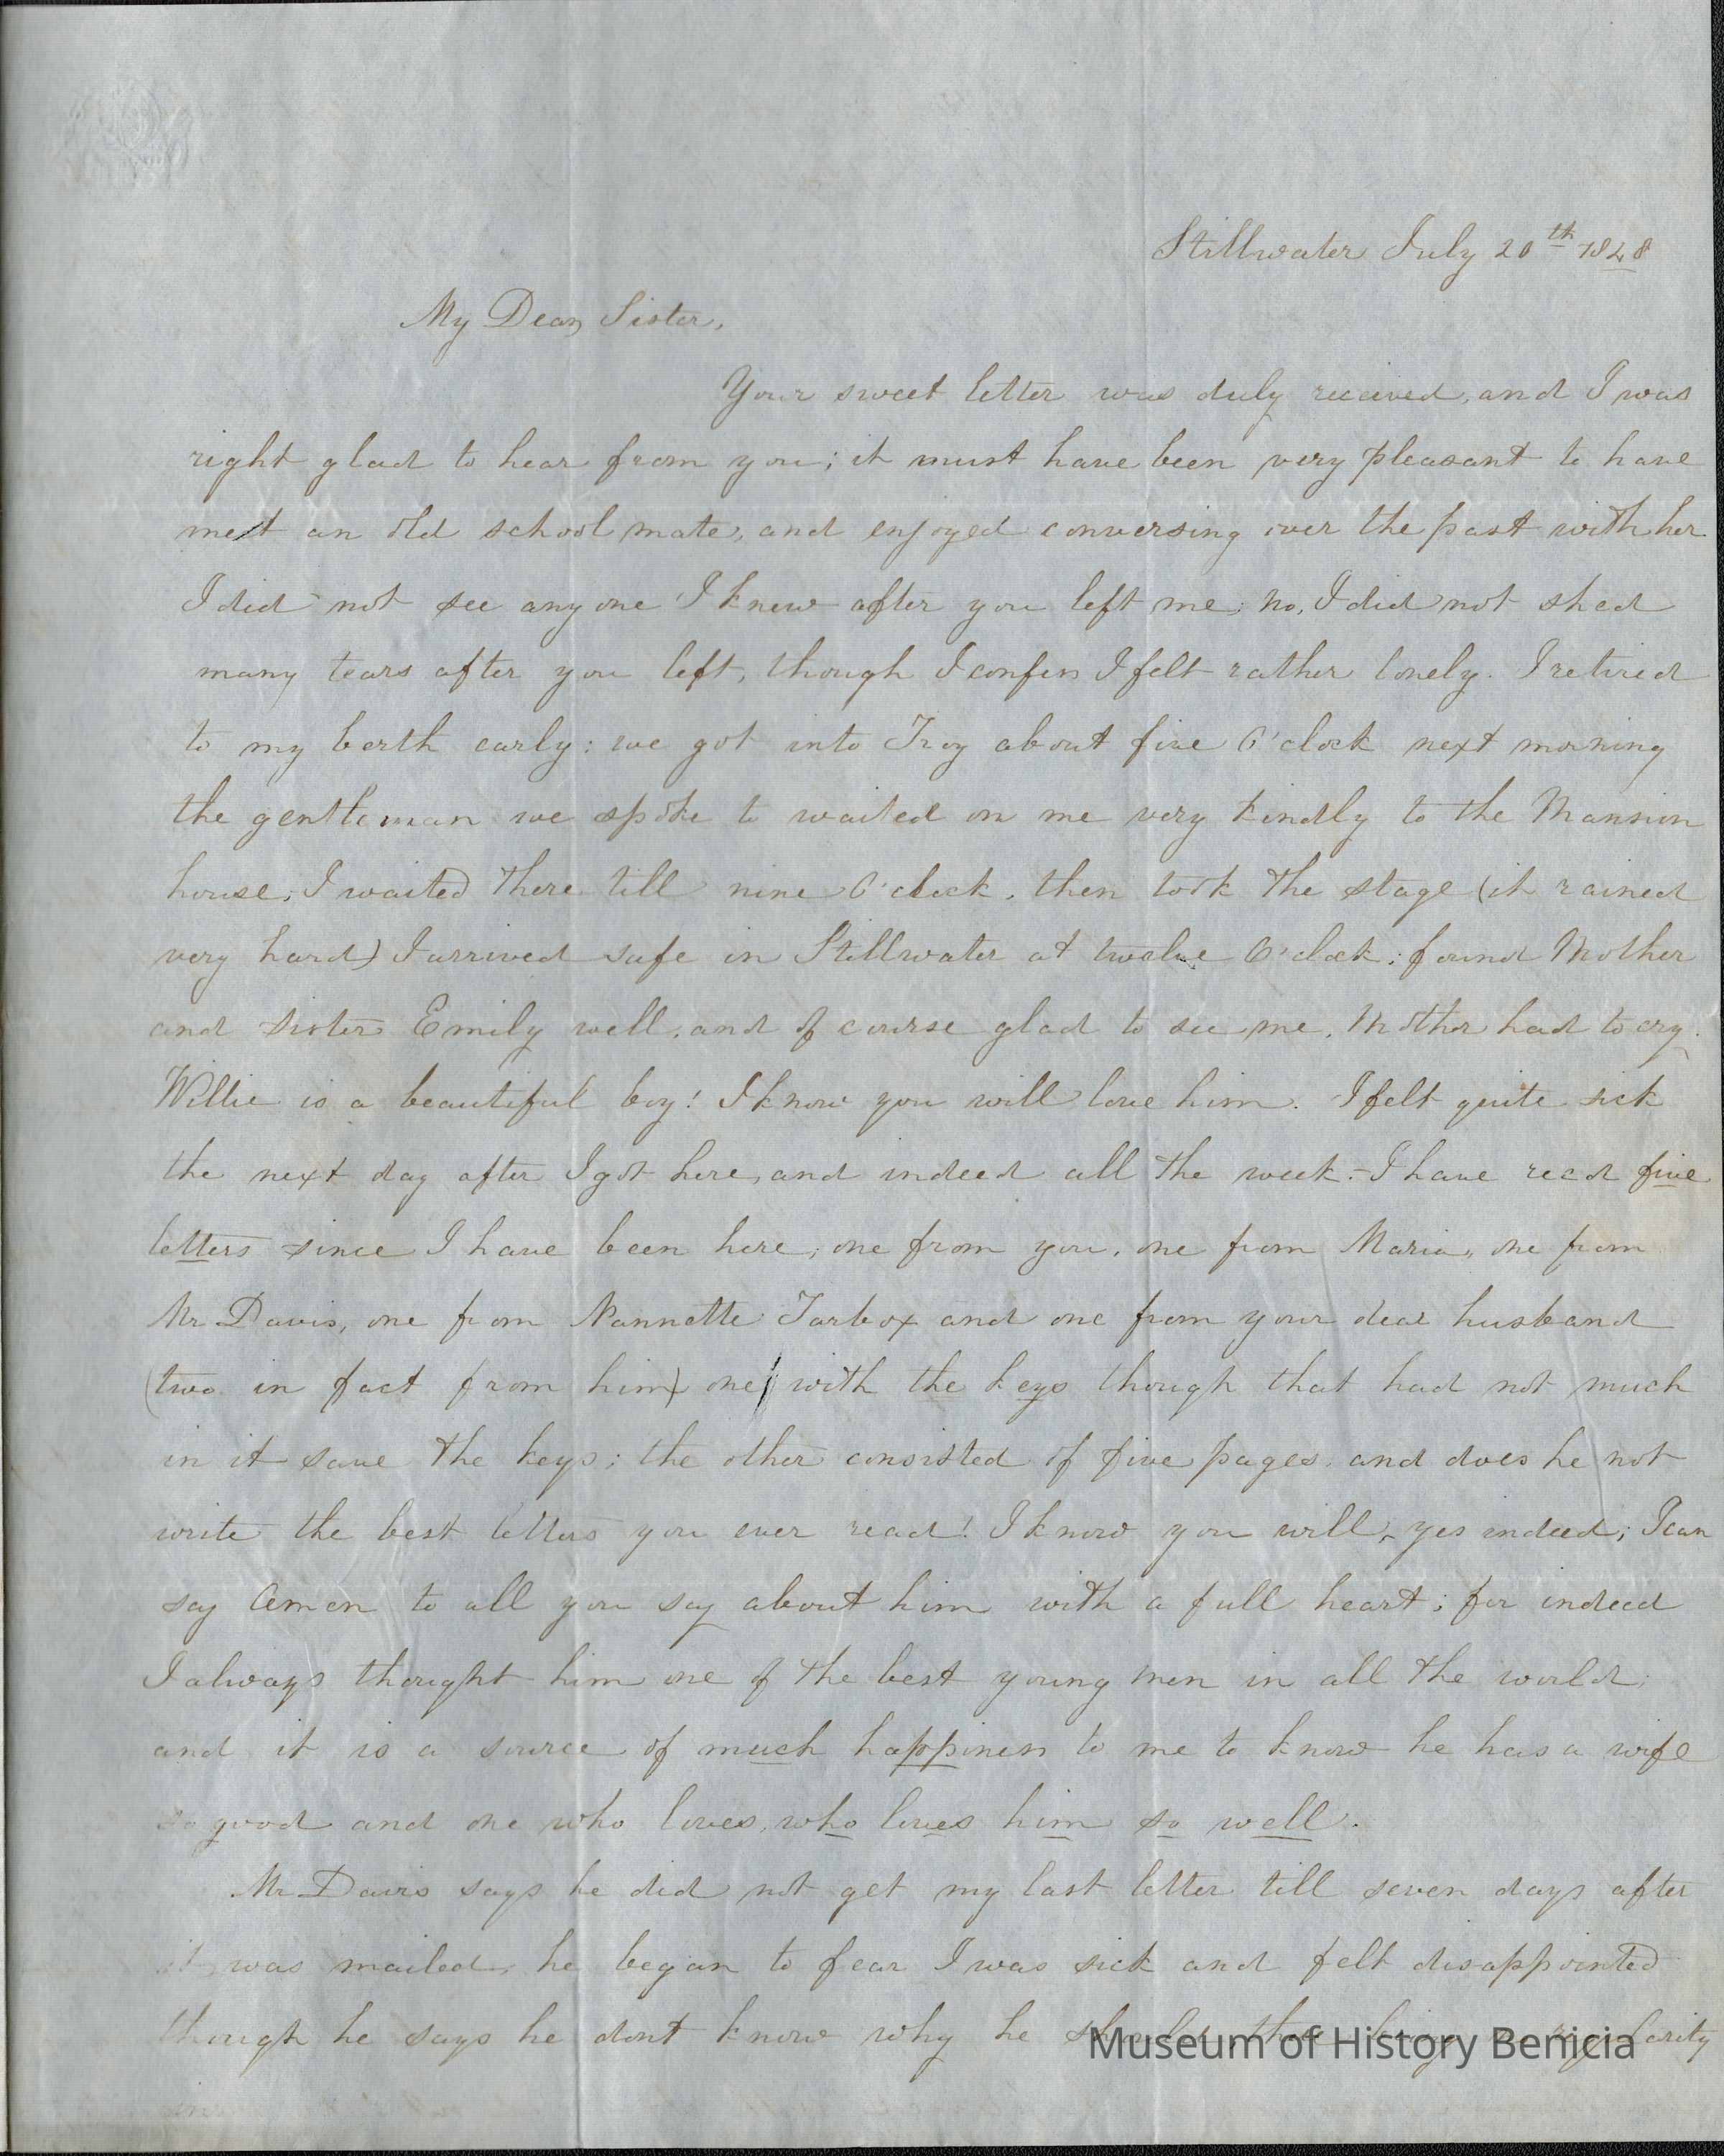 Stillwater July 20th 1848
My Dear Sister,
Your sweet letter was duly recieved, and I was
right glad to hear from you; it must have been very pleasant to have
met an old school mate, and enjoyed conversing over the past with her.
I did not see any one I knew after you left me; no, I did not shed
many tears after you left, though I confess I felt rather lonely. I retired
to my berth early; we got into Troy about five O'clock next morning
the gentleman we spoke to waited on me very kindly to the Mansion
house; I waited there till nine O'clock, then took the stage (it rained
very hard) I arrived safe in Stillwater at twelve O'clock; found Mother
and sister Emily well, and of course glad to see me, Mother had to cry.
Willie is a beautiful boy! I know you will love him. I felt quite sick
the next day after I got here, and indeed all the week. - I have recd five
letters since I have been here, one from you, one from Maria, one from
Mr Davis, one from Nannette Tarbox and one from your dear husband
(two in fact from him) one with the keys though that had not much
in it save the keys; the other consisted of five pages and does he not
write the best letters you ever read! I know you will, - yes indeed; I can
say Amen to all you say about him with a full heart; for indeed
I always thought him one of the best young men in all the world;
and it is a source of much happiness to me to know he has a wife
so good and one who loves, who loves him so well.
Mr Davis says he did not get my last letter till seven days after
it was mailed, he began to fear I was sick and felt disappointed
though he says he dont know why he should there being no regularity
in
Museum of History Benicia